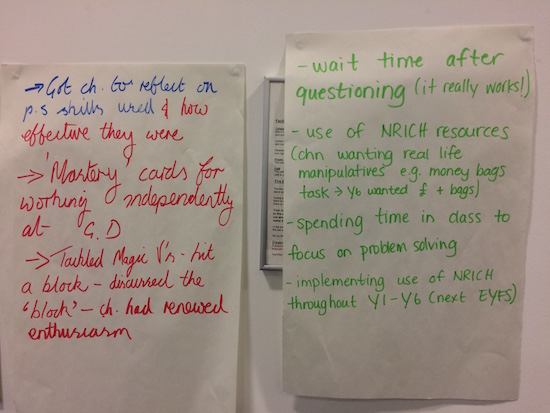 → Got ch. to reflect on
p.s skills used & how
effective they were
→ 'Mastery' cards for
working independently
at G.D
→ Tackled Magic V's - hit
a block - discussed the
'block' - ch. had renewed
enthusiasm
- wait time after
questioning (it really works!)
- use of NRICH resources
(chn wanting real life
manipulatives e.g. money bags
task → Y6 wanted £ + bags)
- spending time in class to
focus on problem solving
- implementing use of NRICH
throughout Y1-Y6 (next EYFS)